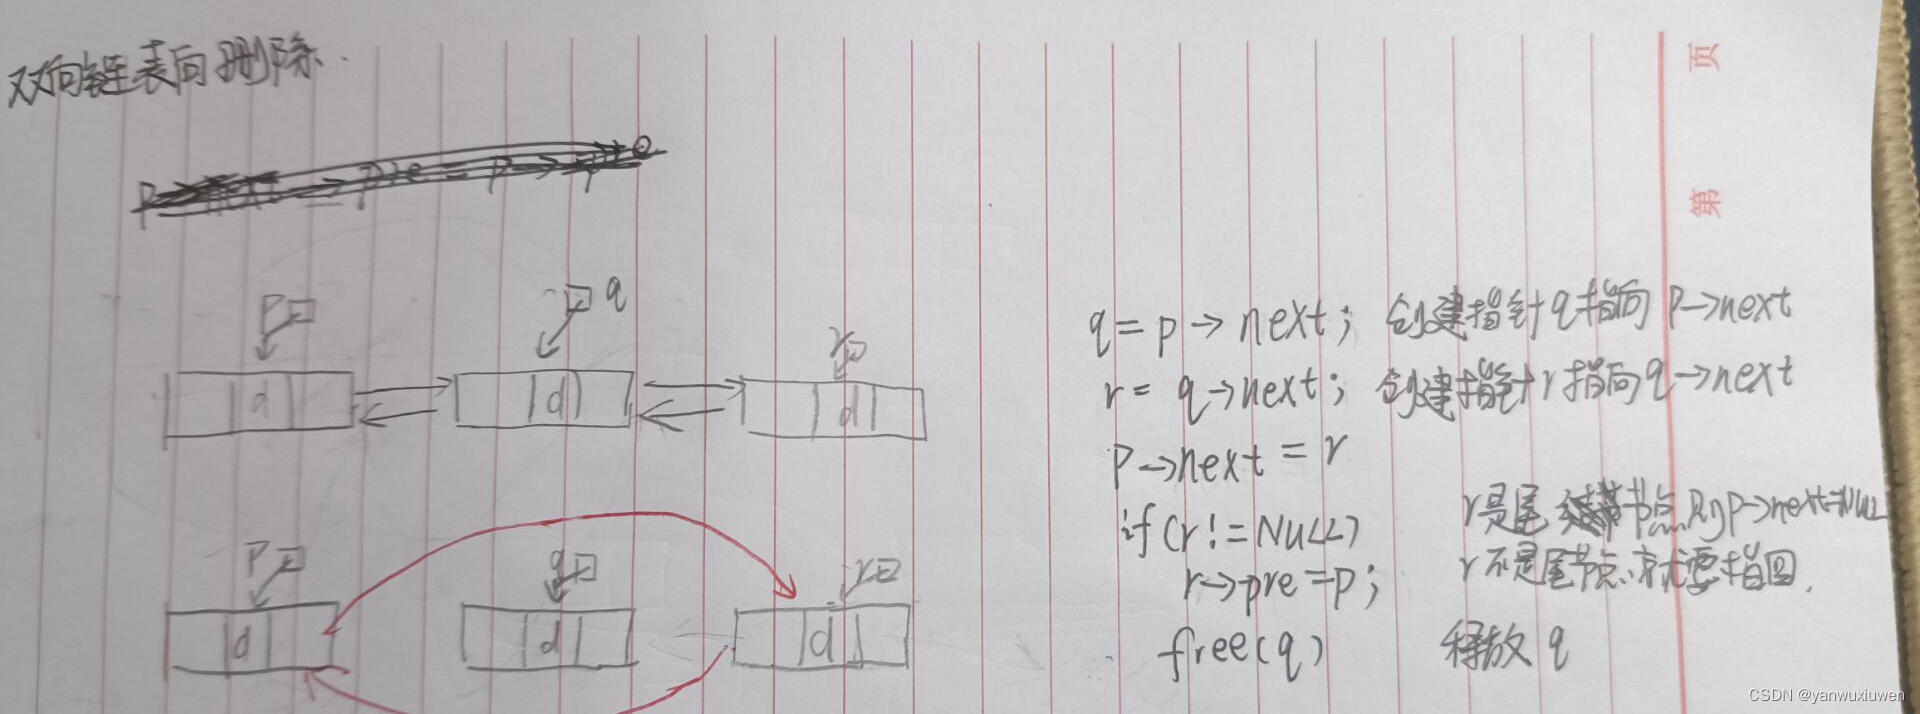 双向链表向删除.
页
第
p→next→pre=p→pre
p
q
r
d
d
d
q=p→next; 创建指针q指向p→next
r=q→next; 创建指针r指向q→next
p→next=r
if(r!=NULL) r是尾节点则p→next=NULL
r→pre=p; r不是尾节点,就要指回.
free(q) 释放q
p
q
r
d
d
d
CSDN @yanwuxiuwen